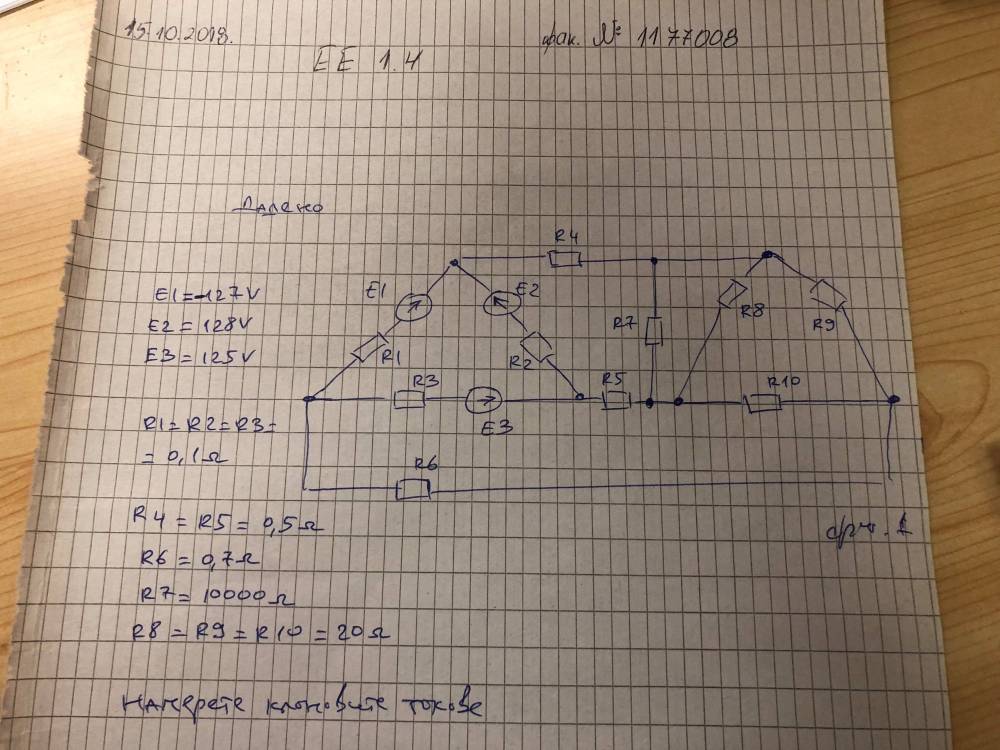 15.10.2018.
фак. № 1177008
EE 1.4
Дадено
E1 = -127V
E2 = 128V
E3 = 125V
R1 = R2 = R3 =
= 0,1Ω
R4 = R5 = 0,5Ω
R6 = 0,7Ω
R7 = 10000Ω
R8 = R9 = R10 = 20Ω
R4
E1
E2
R7
R8
R9
R1
R2
R3
R5
R10
E3
R6
фиг. 1
Намерете клоновите токове